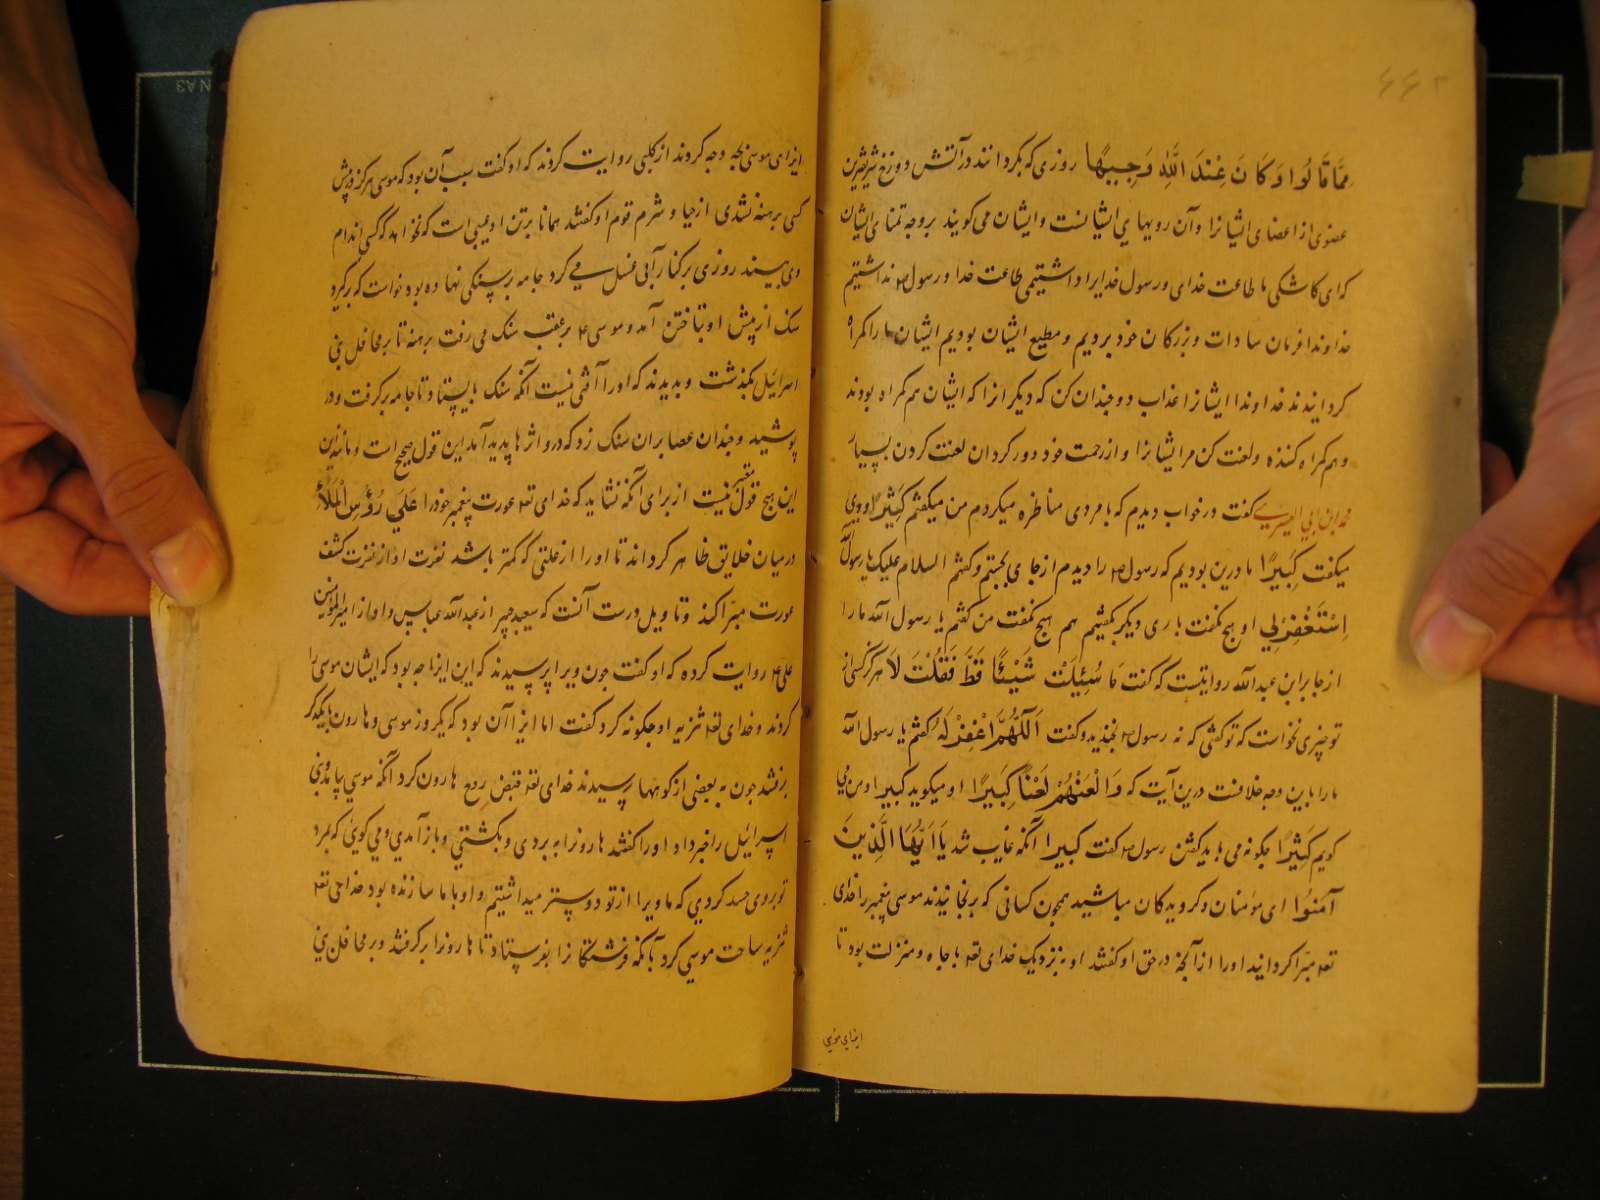 ۶۶۲
مِمَّا قَالُوا وَكَانَ عِنْدَ اللَّهِ وَجِيهًا روزی که بکردانند در آتش دوزخ
عضوی از اعضای ایشانرا وآن رویهای ایشانست وایشان می کویند بر وجه تمنا ای
که ای کاشکی ما طاعت خدای ورسول خدایرا داشتیمی طاعت خدا ورسول نداشتیم
خداوندا فرمان سادات وبزرکان خود بردیم ومطیع ایشان بودیم ایشان ما را کمراه
کردانیدند خداوندا ایشانرا عذاب دوچندان کن که دیکرانرا که ایشان هم کمراه بودند
وهم کمراه کننده ولعنت کن مر ایشانرا واز رحمت خود دور کردان لعنت کردن بسیار
محمد ابن ابی السری کفت در خواب دیدم که با مردی مناظره میکردم من میکفتم كَثِيرًا ووی
میکفت كَبِيرًا ما درین بودیم که رسول را دیدم از جای بجستم وکفتم السلام علیک یا رسول الله
اِسْتَغْفِرْلِي او هیچ نکفت باری دیکر بکفتم هم هیچ نکفت من کفتم یا رسول الله ما را
از جابر ابن عبدالله روایتست که کفت مَا سُئِلْتَ شَيْئًا قَطُّ فَقُلْتَ لَا هرکز کسی از
تو چیزی نخواست که تو کفتی که نه رسول بخندید وکفت اَللَّهُمَّ اغْفِرْ لَهُ کفتم یا رسول الله
ما را باین وجه خلافست درین آیت که وَالْعَنْهُمْ لَعْنًا كَبِيرًا او میکوید کبیر او من می
کویم كَثِيرًا چکونه می باید کفتن رسول کفت کبیرا آنکه غایب شد يَا أَيُّهَا الَّذِينَ
آمَنُوا ای مؤمنان وکرویدکان مباشید همچون کسانی که برنجانیدند موسی پیغمبر را خدای
تعه مبرّا کردانید اورا از آنچه در حق او کفتند او به نزدیک خدای تعه با جاه ومنزلت بود تا
ایذای موسی
ایذای موسی بچه وجه کردند از کلبی روایت کردند که او کفت سبب آن بود که موسی هرکز در پیش
کسی برهنه نشدی از حیا وشرم قوم او کفتند همانا بر تن او عیبی است که نخواهد که کسی اندام
وی بیند روزی بر کنار آبی غسل می کرد جامه بر سنکی نهاده بود خواست که برکیرد
سنک از پیش او بتاختن آمد وموسی بر عقب سنک می رفت برهنه تا بر محافل بنی
اسرائیل بکذشت وبدیدند که اورا آفتی نیست آنکه سنک بایستاد تا جامه برکرفت ودر
پوشید وچندان عصا بران سنک زد که درو اثرها پدید آمد این قول صحیح است ومانند این
این هیچ قول معتبر نیست از برای آنکه نشاید که خدای تعه عورت پیغمبر خودرا عَلَى رُؤُسِ الْمَلَأ
در میان خلایق ظاهر کرداند تا اورا از علتی که کمتر باشد نفرت او از نفرت کشف
عورت مبرّا کند وتاویل درست آنست که سعید جبیر از عبدالله عباس واو از امیرالمؤمنین
علی روایت کرده که او کفت چون ویرا پرسیدند که این ایذا چه بود که ایشان موسی را
کردند وخدای تعه تنزیه او چکونه کرد کفت اما ایذا آن بود که یکروز موسی وهارون با یکدیکر
برفتند چون به بعضی از کوهها رسیدند خدای تعه قبض روح هارون کرد آنکه موسی بیامد وبنی
اسرائیل را خبر داد اورا کفتند هارونرا به بردی وبکشتی وباز آمدی ومی کویی که بمرد
تو بروی حسد کردی که ما ویرا از تو دوستر میداشتیم واو با ما سازنده بود خدای تعه
تنزیه ساحت موسی کرد بآنکه فرشتکانرا بفرستاد تا هارونرا برکرفتند وبر محافل بنی